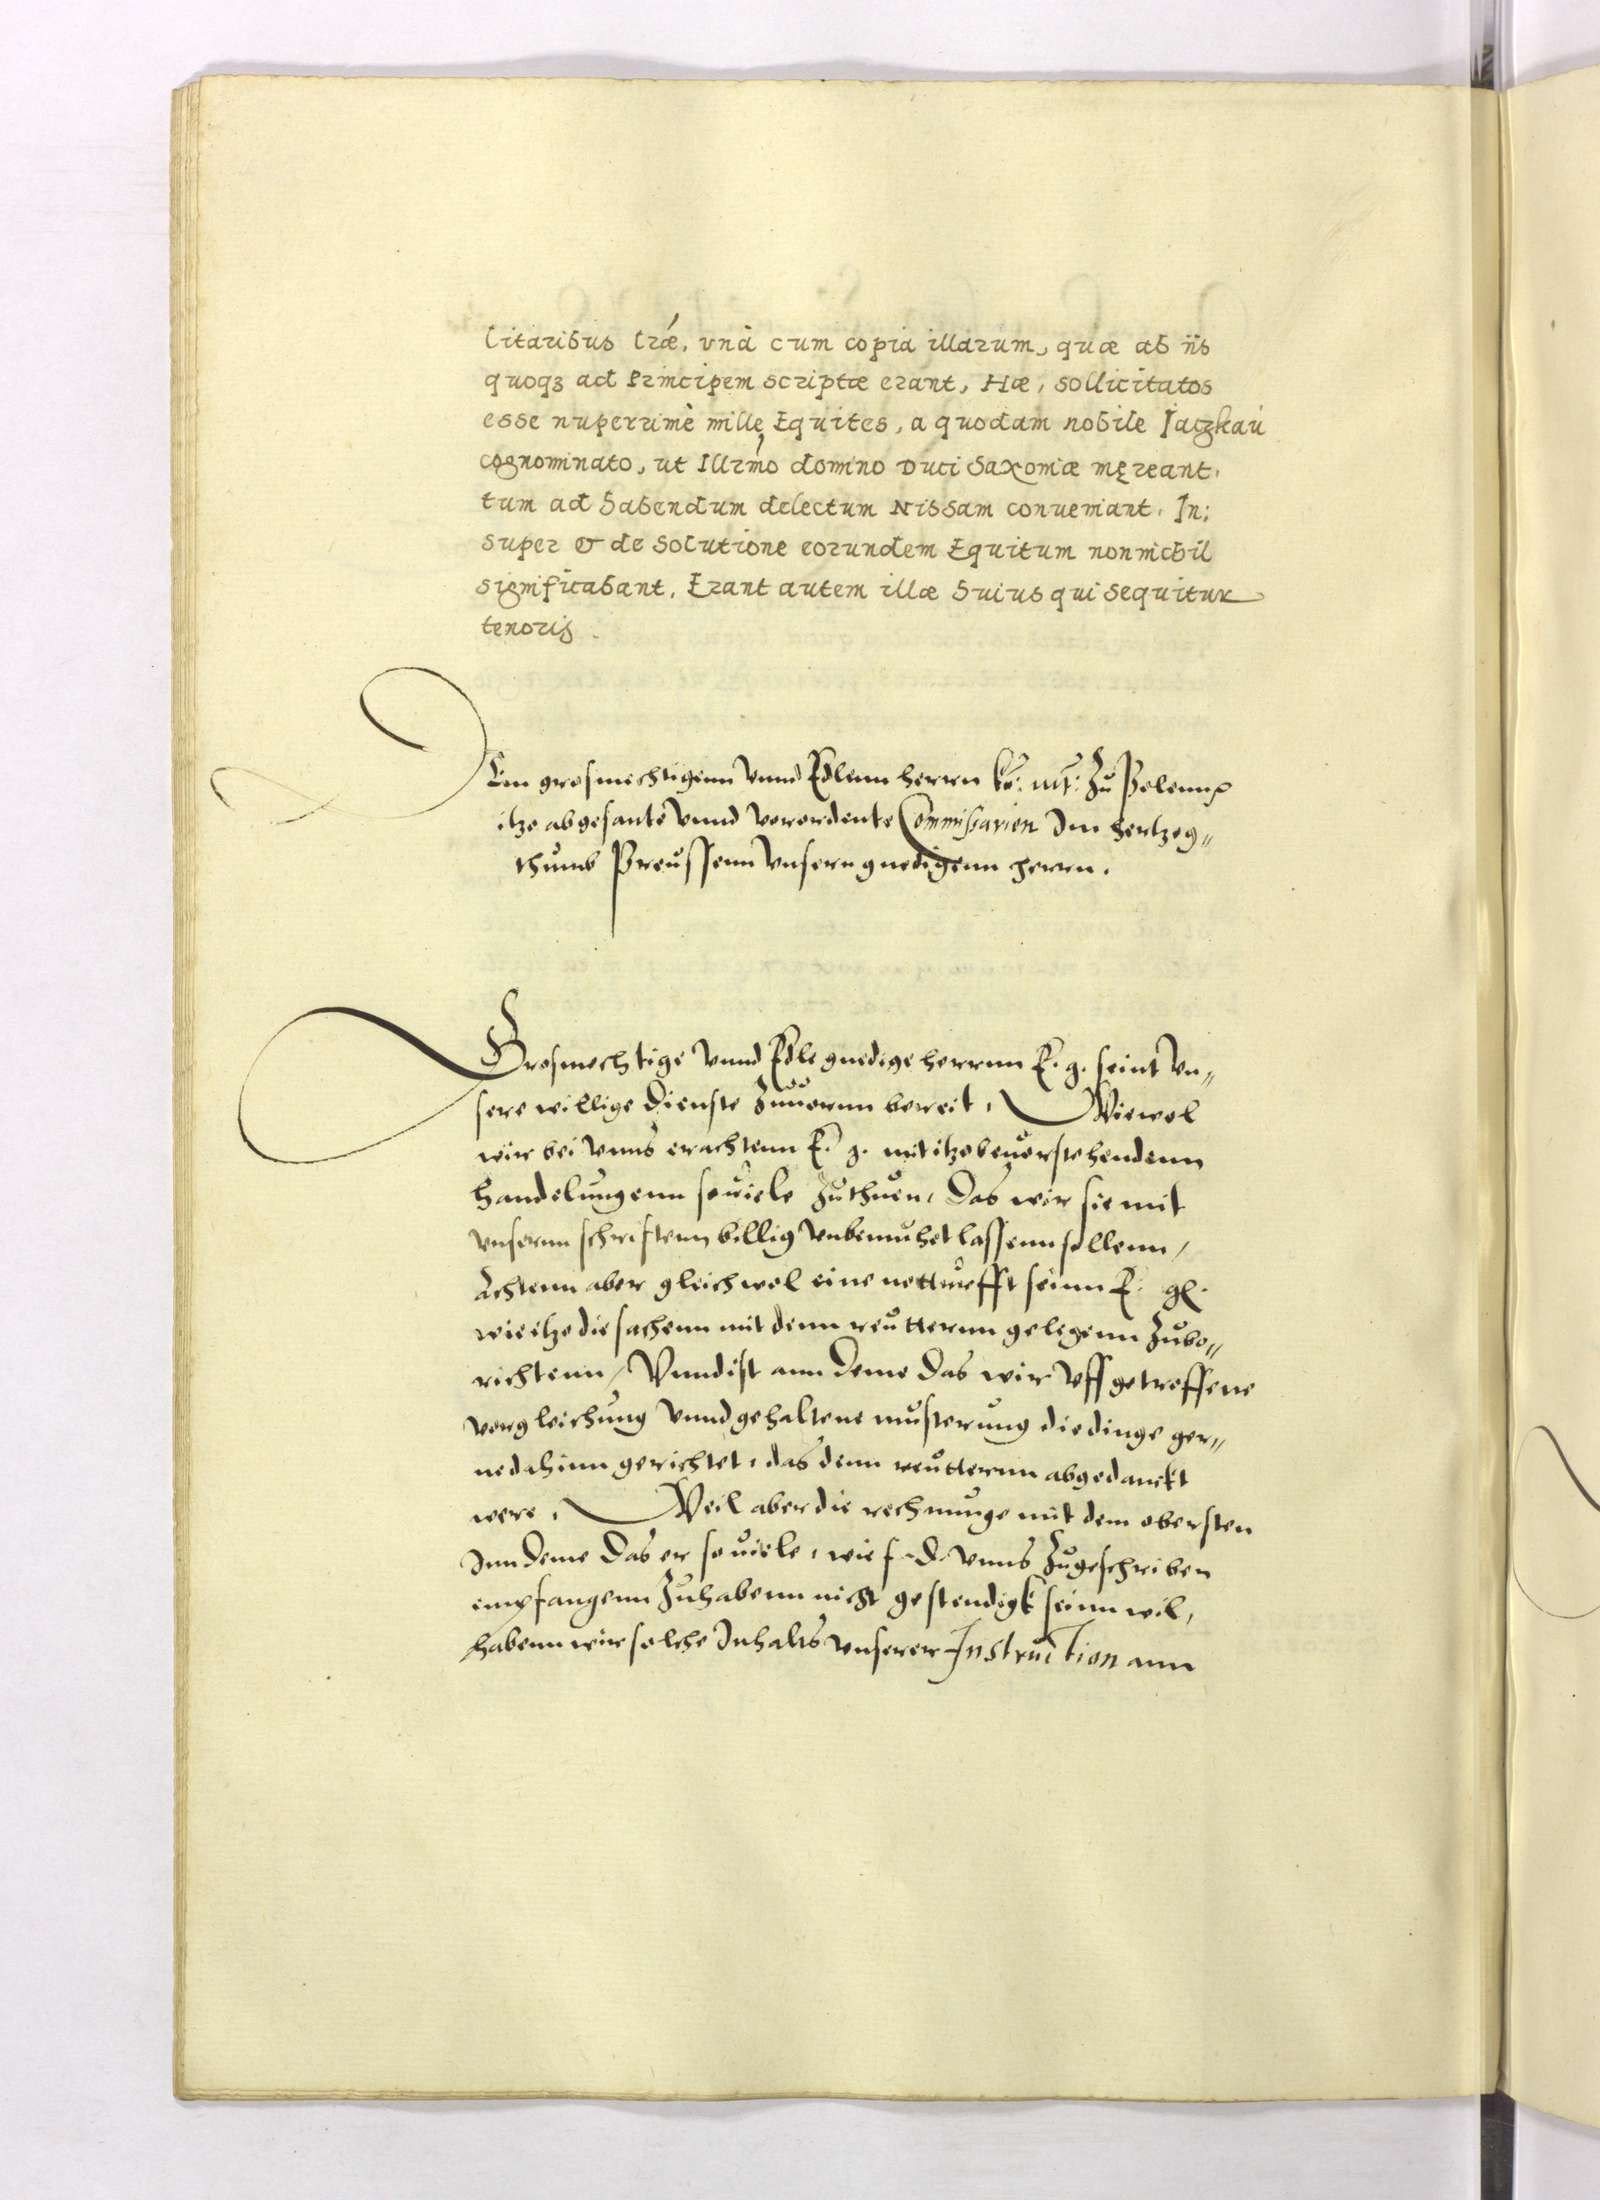 litaribus lrae, vnà cum copia illarum, quae ab iis
quoqз ad Principem scriptae erant, Hae, sollicitatos
esse nuperrimè mille Equites, a quodam nobile Jaczkau
cognominato, ut Illrmo domino Duci Saxoniae mereant,
tum ad habendum delectum Nissam conueniant. In:
super & de Solutione eorundem Equitum nonnichil
significabant. Erant autem illae huius qui sequitur
tenoris.
Den grosmechtigenn Vnnd Edlenn herrn ko: mt: Zu Polenn
itzo abgesante Vnnd verordente Commissarien Im hertzog„
thumb Preussenn Vnsern gnedigenn herrn.
Grosmechtige Vnnd Edle gnedige herrnn E. g. seint Vn„
sere willige dienste Zuuornn bereit, Wiewol
wir bei Vnns erachtenn E. g. mit itzo beuorstehendenn
Handelungenn souiele Zuthuen, Das wir sie mit
vnsernn schrifftenn billig Vnbemuhet lassenn sollenn,
Achtenn aber gleichwol eine notturfft seinn E. g.
wie itzo die sachenn mit denn reutternn gelegenn Zube„
richtenn, Vnnd ist ann deme das wir Vff getroffene
vorgleichung Vnnd gehaltene musterung die dinge ger„
ne dahinn gerichtet, das denn reutternn abgedanckt
were, Weil aber die rechnunge mit dem obersten
Inn deme das er so uiele, wie f. d. Vnns Zugeschriben
empfangenn Zuhabenn nicht gestendigk seinn wil,
habenn wir solche Inhalts vnserer Instruction ann